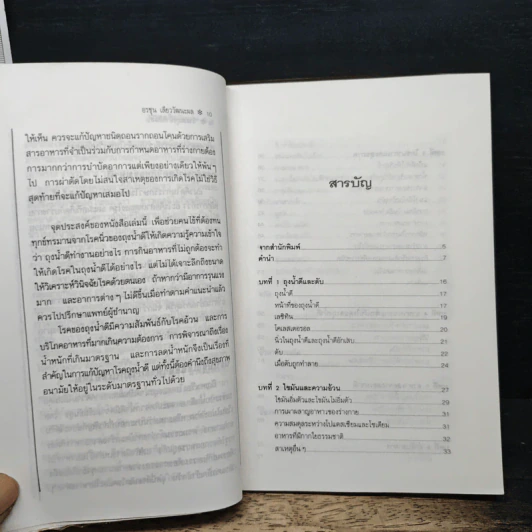 อรชุน เลียววัฒนะผล ❋ 13
ให้เห็น ควรจะแก้ปัญหาชนิดถอนรากถอนโคนด้วยการเสริม
สารอาหารที่จำเป็นร่วมกับการกำหนดอาหารที่ร่างกายต้อง
การมากกว่าการบำบัดอาการแต่เพียงอย่างเดียวให้พ้นๆ
ไป การผ่าตัดโดยไม่สนใจสาเหตุของการเกิดโรคไม่ใช่วิธี
สุดท้ายที่จะแก้ปัญหาเสมอไป
จุดประสงค์ของหนังสือเล่มนี้ เพื่อช่วยคนไข้ที่ต้องทน
ทุกข์ทรมานจากโรคนิ่วของถุงน้ำดีให้เกิดความรู้ความเข้าใจ
ว่า ถุงน้ำดีทำงานอย่างไร การกินอาหารที่ไม่ถูกต้องจะทำ
ให้เกิดโรคในถุงน้ำดีได้อย่างไร แต่ไม่ได้เจาะลึกถึงขนาด
ให้วิเคราะห์วินิจฉัยโรคด้วยตนเอง ถ้าหากว่ามีอาการรุนแรง
มาก และอาการต่างๆ ไม่ดีขึ้นเมื่อทำตามคำแนะนำแล้ว
ควรไปปรึกษาแพทย์ผู้ชำนาญ
โรคของถุงน้ำดีมีความสัมพันธ์กับโรคอ้วน และการ
บริโภคอาหารที่มากเกินความต้องการ การพิจารณาถึงเรื่อง
น้ำหนักที่เกินมาตรฐาน และการลดน้ำหนักจึงเป็นเรื่องที่
สำคัญในการแก้ปัญหาโรคถุงน้ำดี แต่ทั้งนี้ต้องคำนึงถึงสุขภาพ
อนามัยให้อยู่ในระดับมาตรฐานทั่วไปด้วย
สารบัญ
จากสำนักพิมพ์ 5
คำนำ 7
บทที่ 1 ถุงน้ำดีและตับ 16
ถุงน้ำดี 17
หน้าที่ของถุงน้ำดี 17
เลซิติน 19
โคเลสเตอรอล 20
นิ่วในถุงน้ำดีและถุงน้ำดีอักเสบ 21
ตับ 22
เมื่อตับถูกทำลาย 24
บทที่ 2 ไขมันและความอ้วน 27
ไขมันอิ่มตัวและไขมันไม่อิ่มตัว 29
การเผาผลาญอาหารของร่างกาย 31
ความสมดุลระหว่างโปแตสเซียมและโซเดียม 31
อาหารที่มีกากใยธรรมชาติ 32
สาเหตุอื่นๆ 33